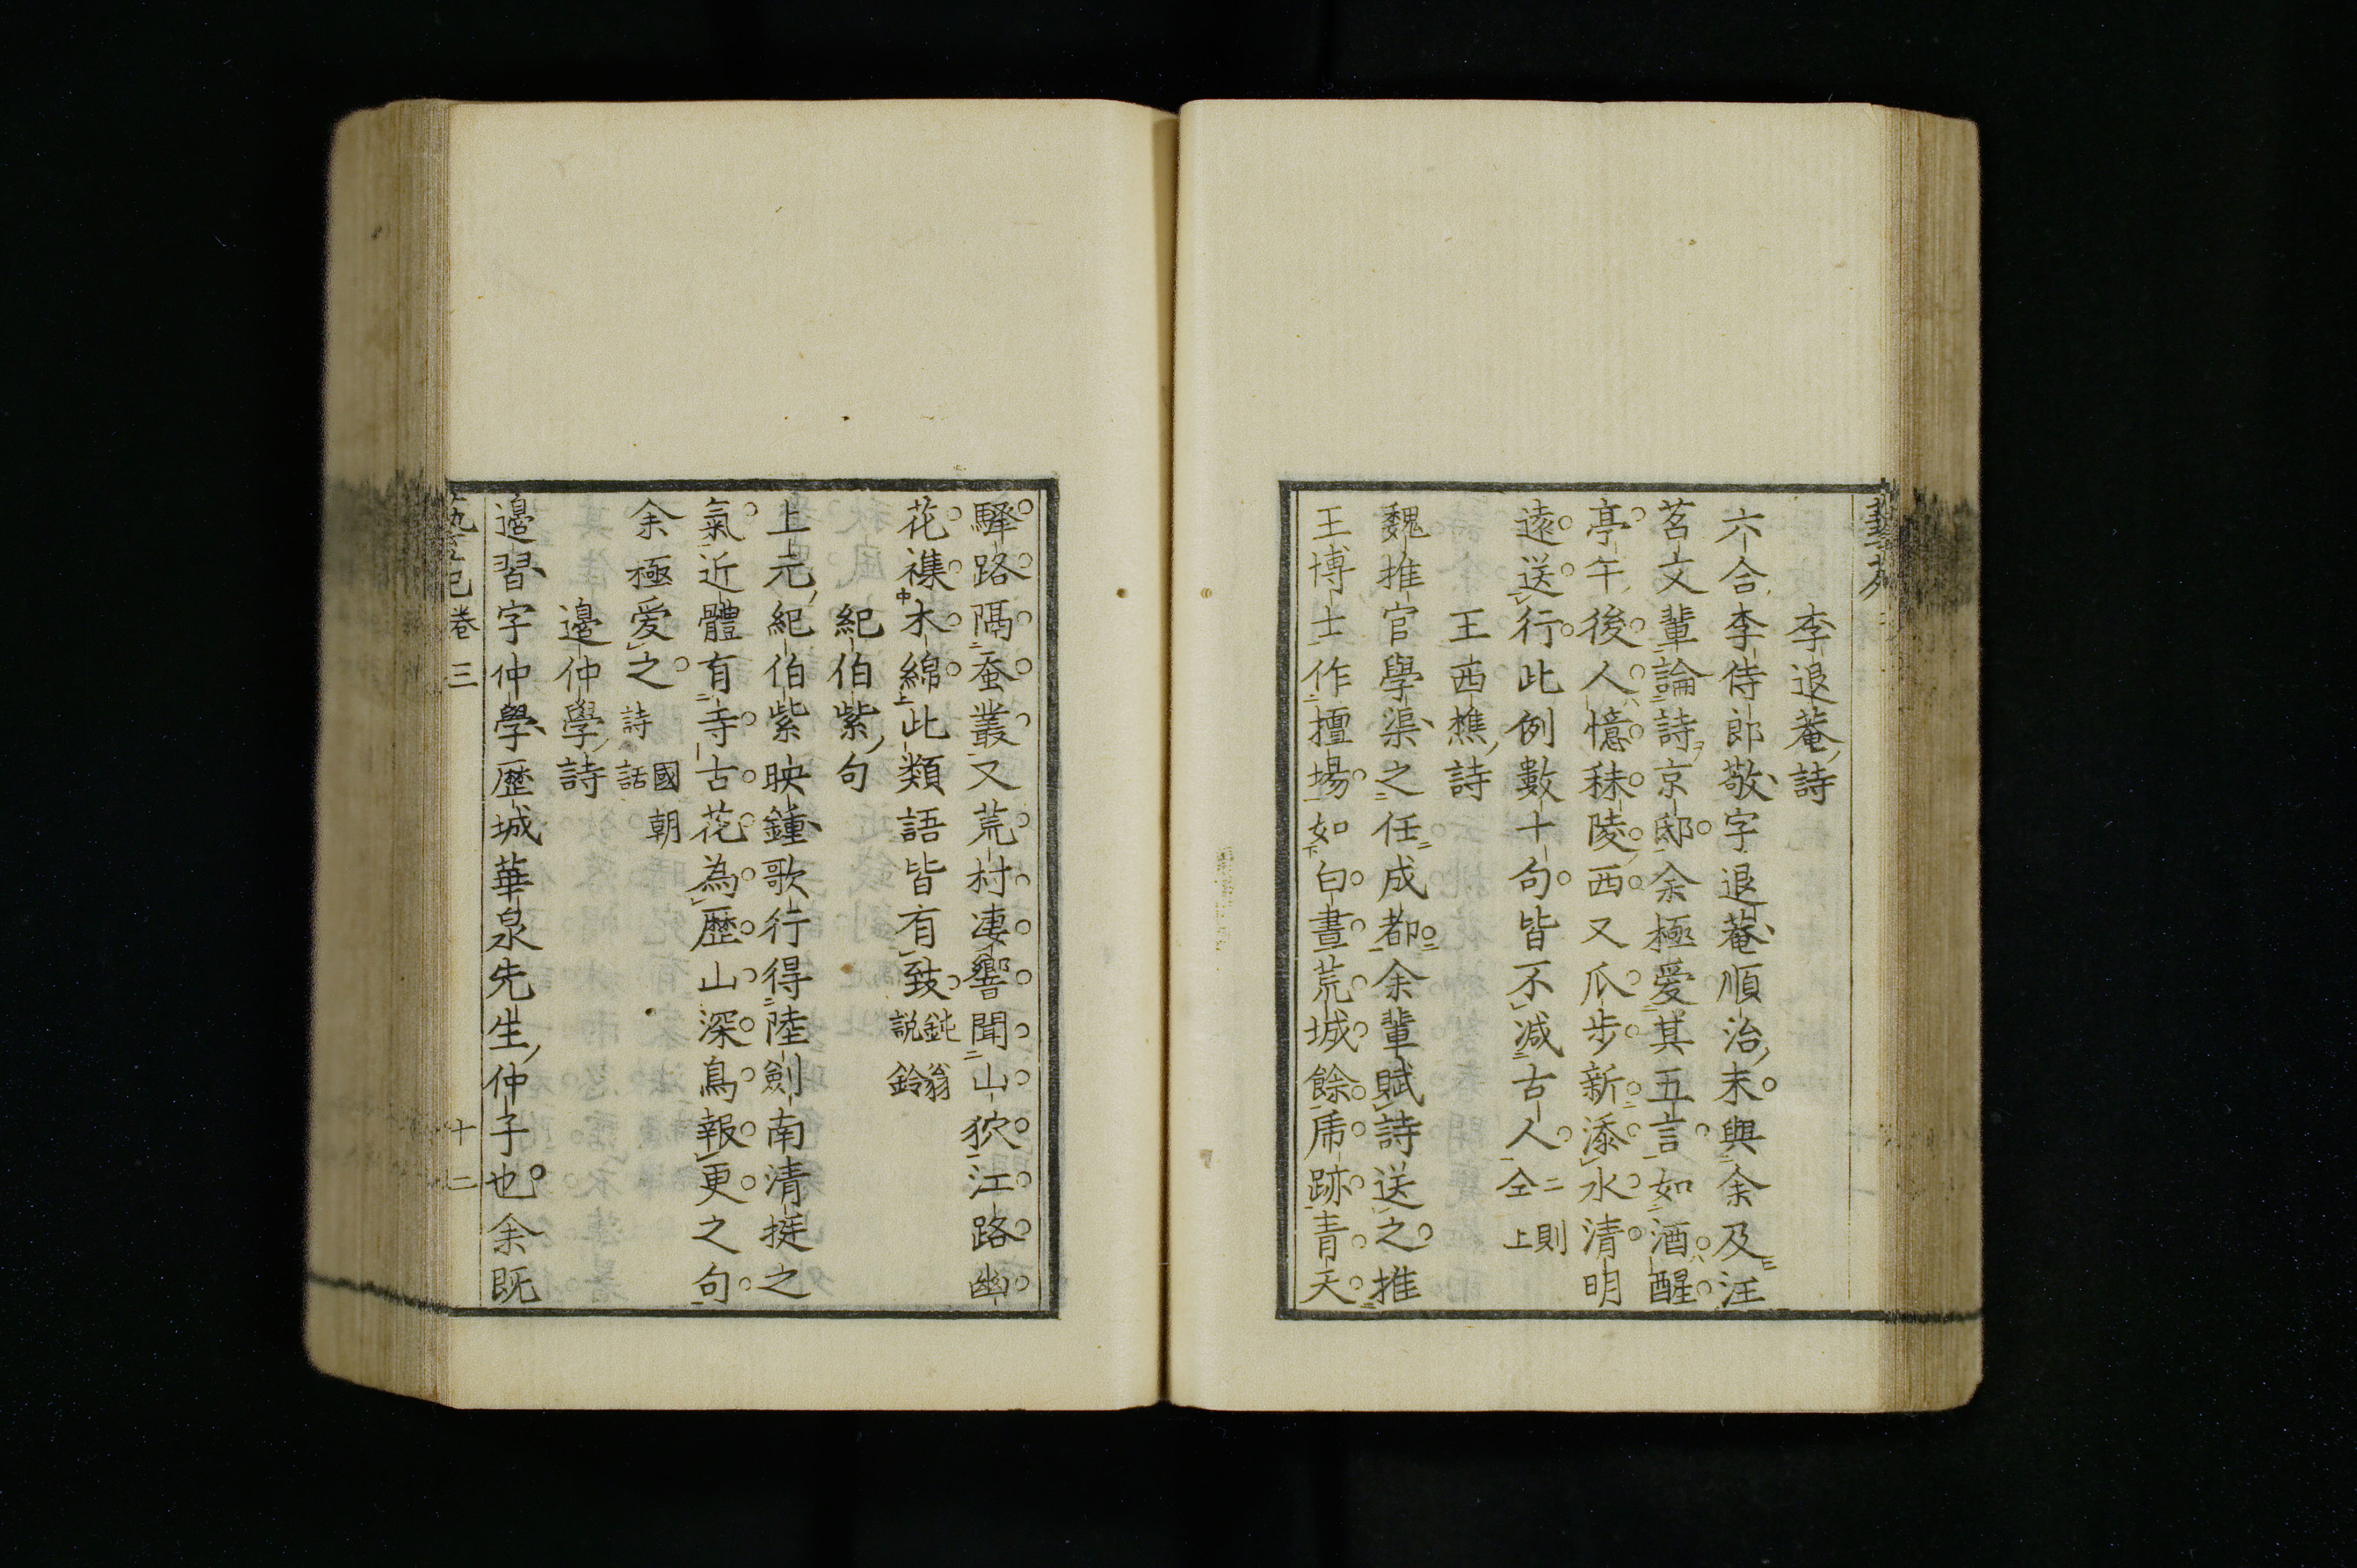 李退菴詩
六合李侍郎敬字退菴順治末與余及汪
苕文輩論詩京邸余極爱其五言如酒醒
亭午後人憶秣陵西又瓜步新添水清明
遠送行此例數十句皆不减古人二則仝上
王西樵詩
魏推官學渠之任成都余輩賦詩送之推
王博士作擅場如白晝荒城餘乕跡青天
驛路隔蚕叢又荒村凄響聞山狖江路幽
花襍木綿此類語皆有致鈍翁説鈴
紀伯紫句
上元紀伯紫映鍾歌行得陸劍南清挺之
氣近體有寺古花為歷山深鳥報更之句
余極爱之國朝詩話
邊仲學詩
邊習字仲學歷城華泉先生仲子也余既
卷三
十二